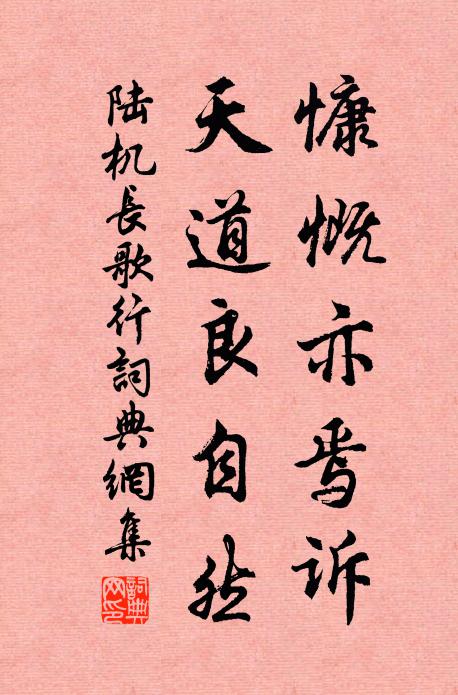 慷慨亦焉诉
天道良自然
陆机長歌行詞典網集
詞典網印